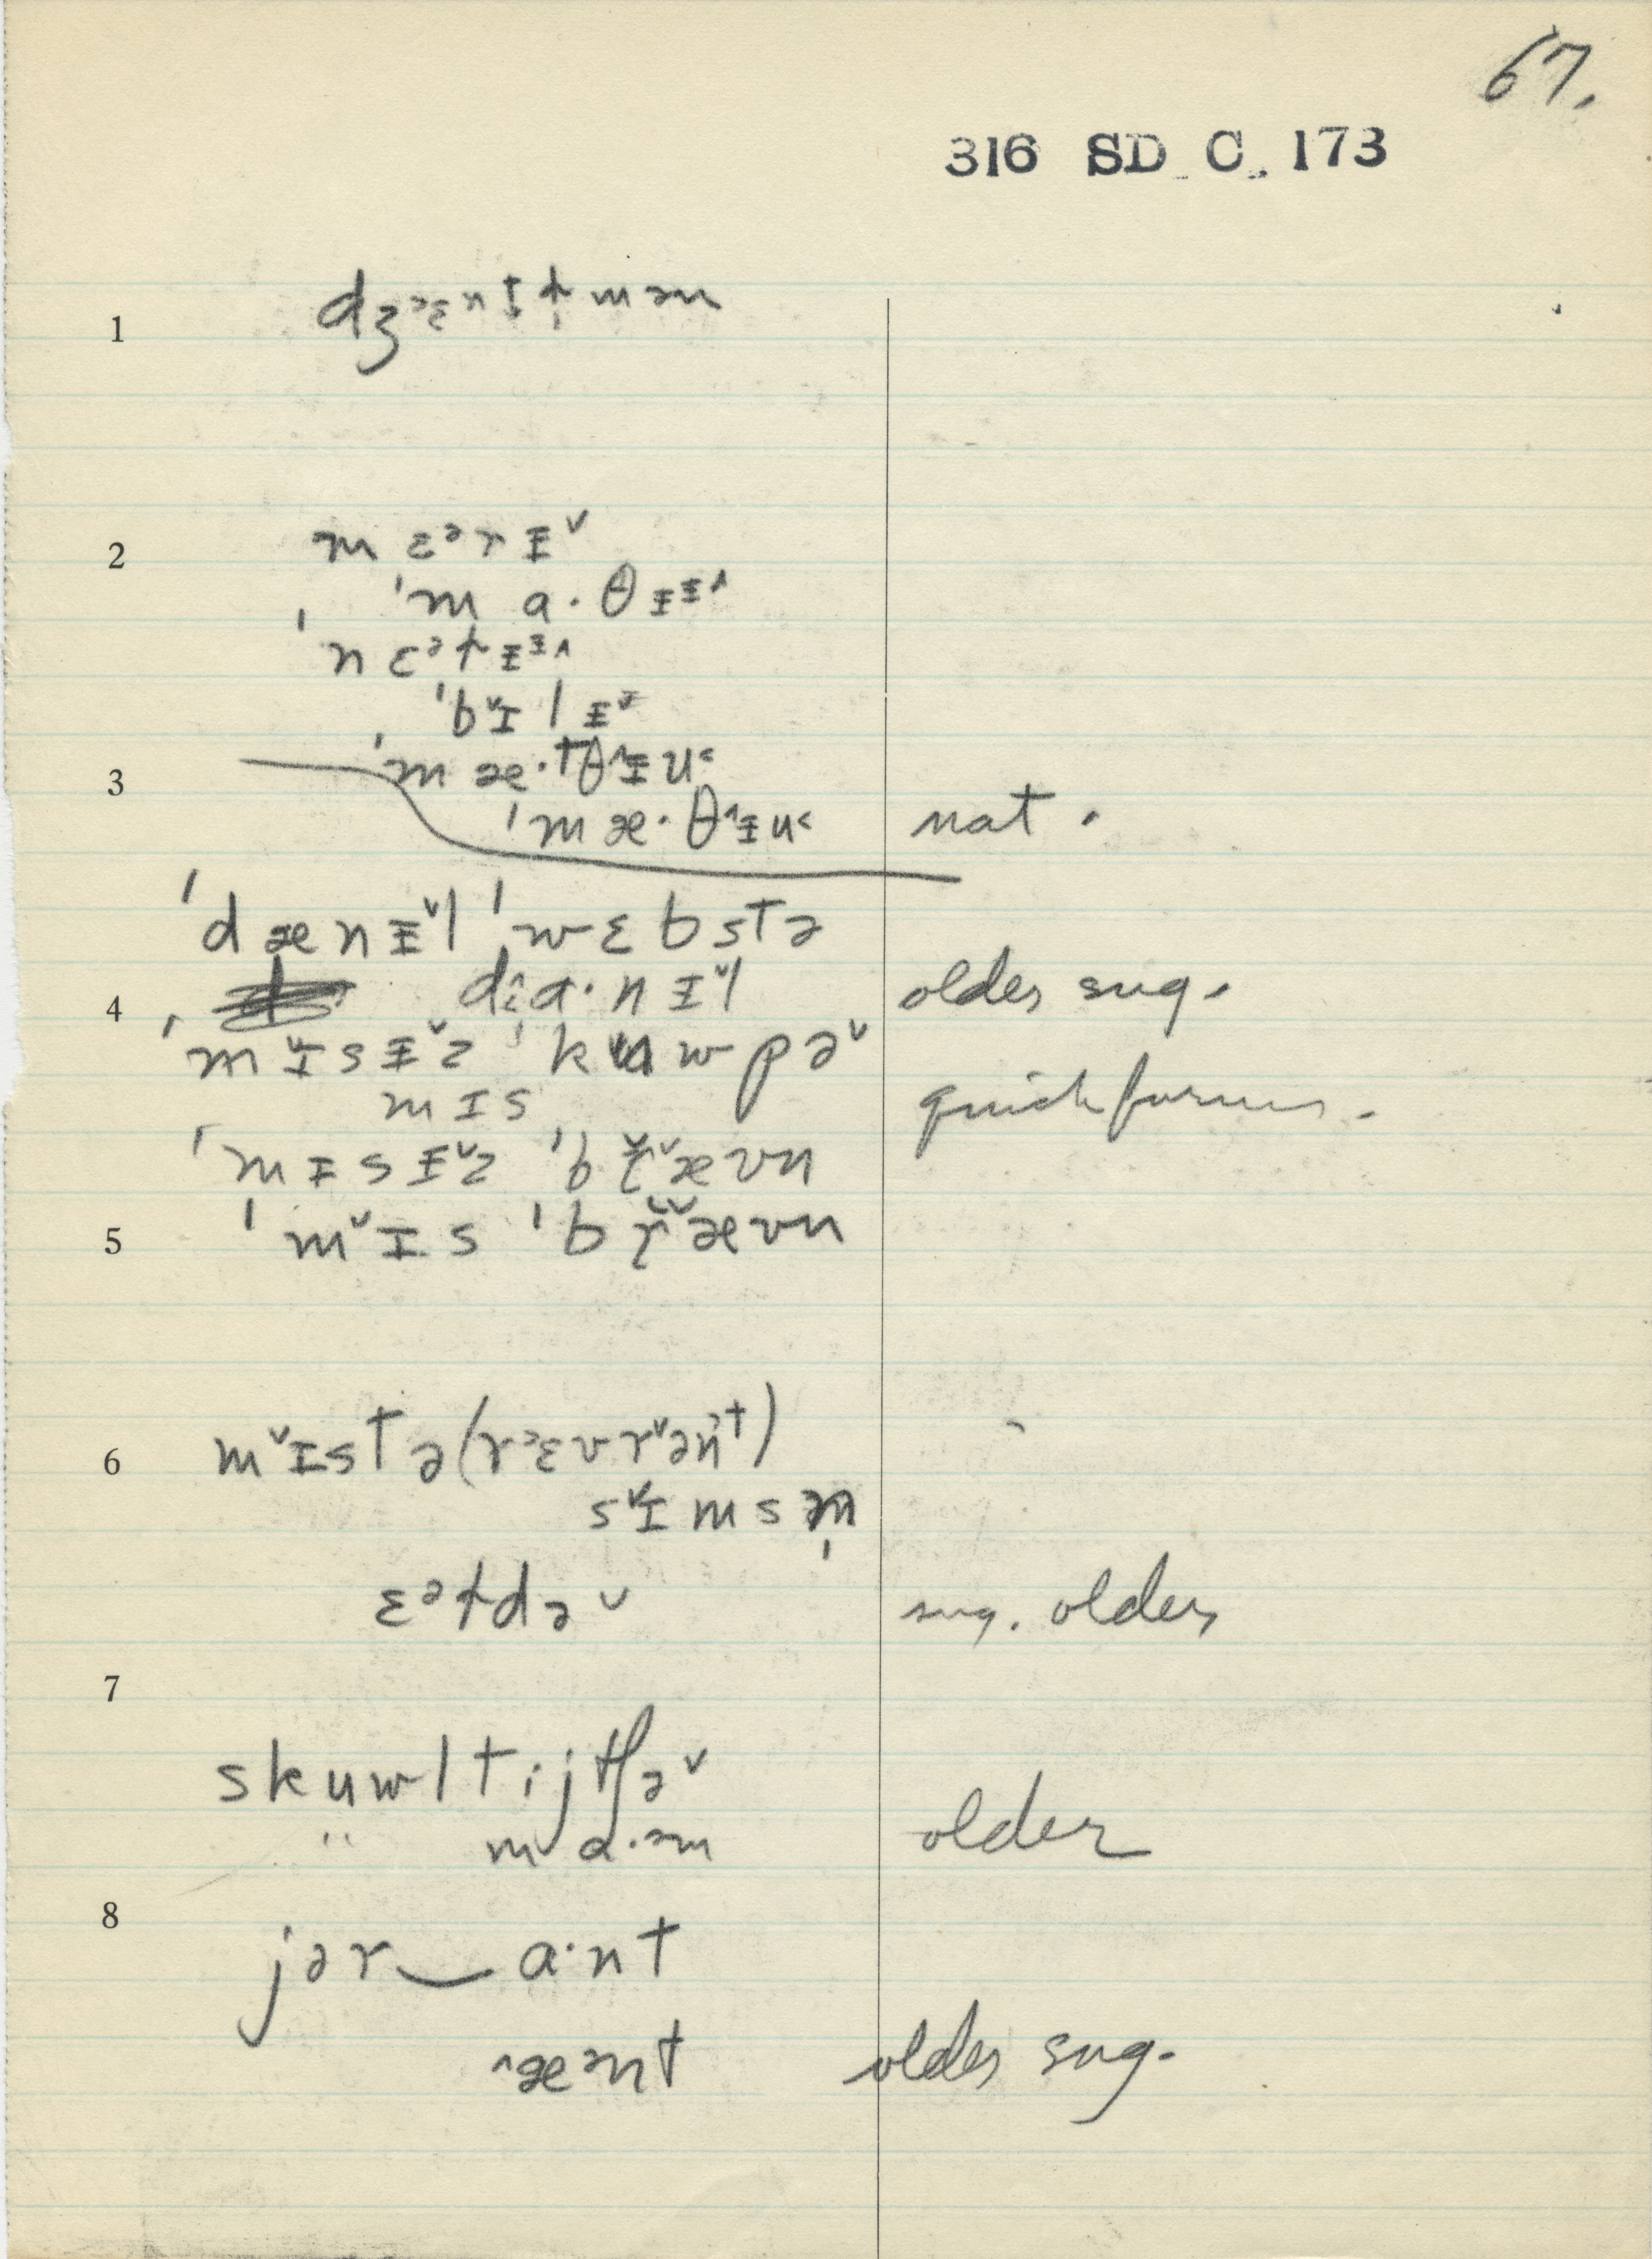 67.
316 SD C. 173
1 dʒᵊɛntɫ̩mən
2 mɛᵊrɪ̵ˇ
ˈma·θɪ̵ɪ̵^
ˈnɛᵊɫɪ̵ɪ̵^
ˈbˇɪlɪ̵ˇ
3 ˈmæ·tθ^ɪ̵u˂
ˈmæ·θ^ɪ̵u˂ nat.
ˈdænɪ̵ˇl ˈwɛbstə
4 da·nɪˇl older sug.
ˈmˇɪsɪ̵ˇz ˈkuwpəˇ
mɪs quick forms.
ˈmɪsɪ̵ˇz ˈbɽˇævn
5 ˈmˇɪs ˈbɽˇævn
6 mˇɪstə(rᵊɛvrˇənt)
sˇɪmsən̩
ɛᵊɫdəˇ sug. older
7
skuwltijtʃəˇ
" ma·əm older
8 jər‿a·nt
^æənt older sug.